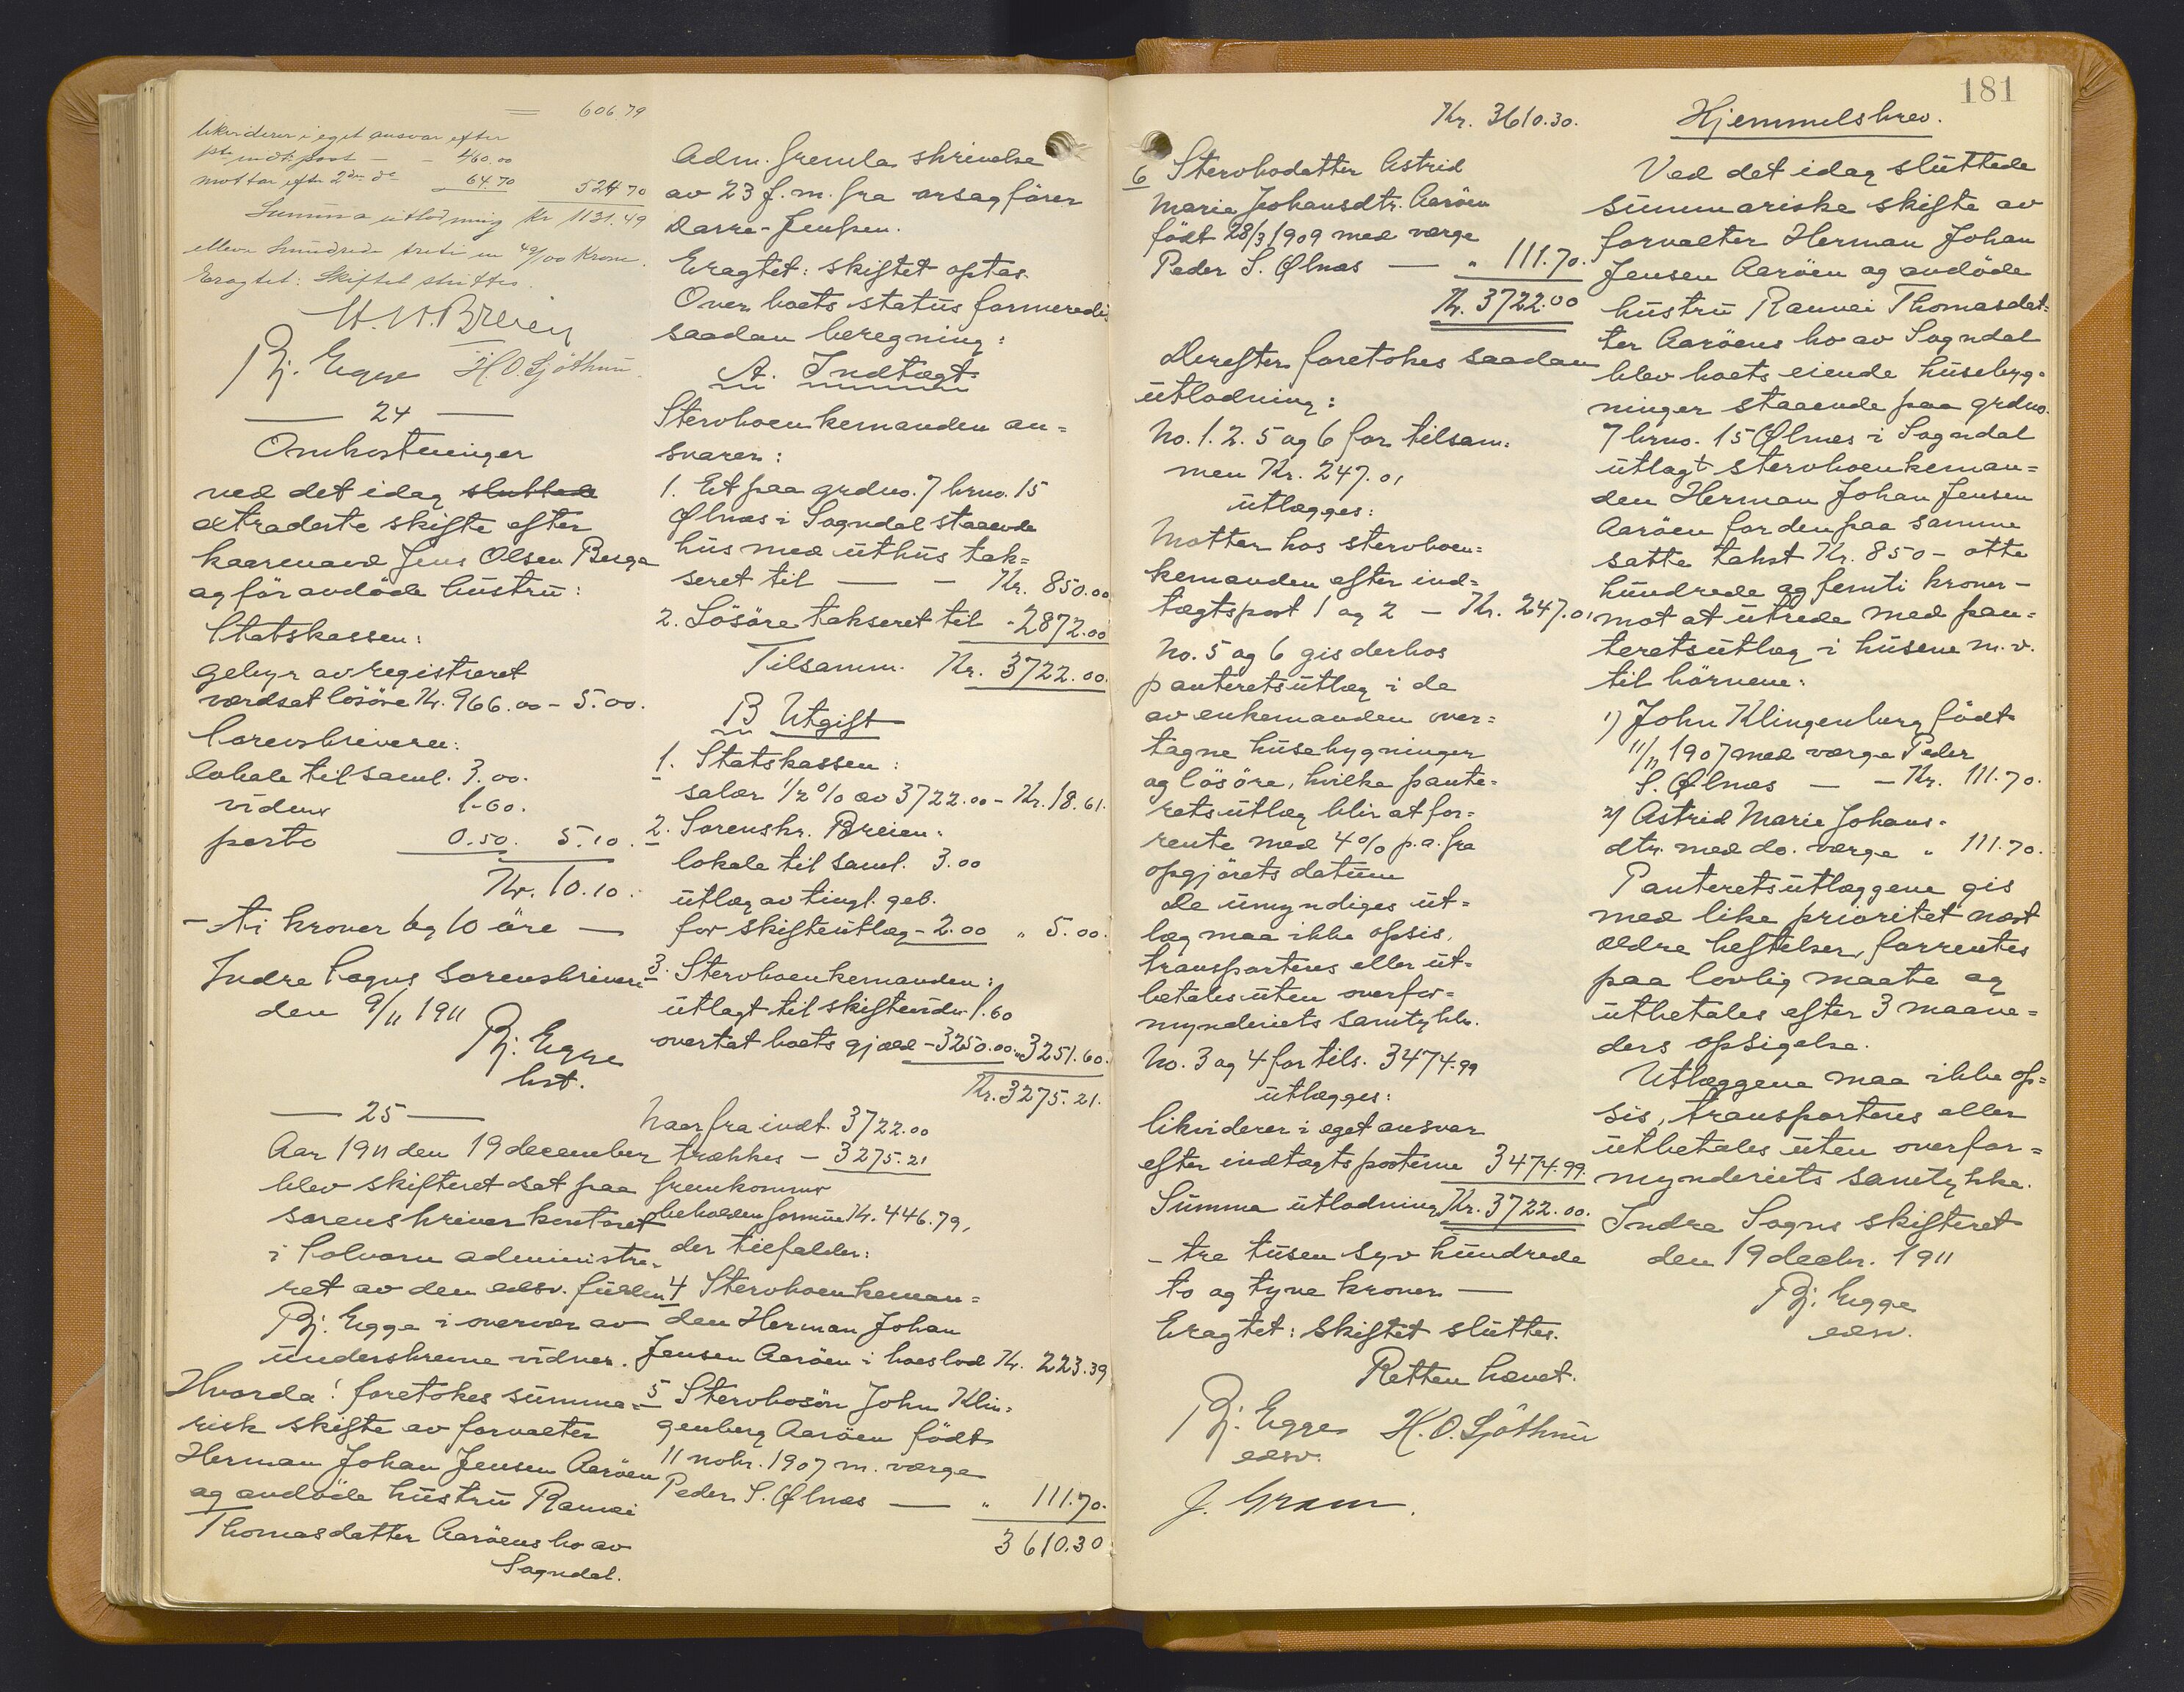 = 606.79
likviderer i eget ansvar efter
pt. indt. post - - 460.00
mottar efter 2den do 64.70 524 70
Summa utlodning Kr 1131.49
elleve hundrede treti en 49/100 Krone.
Eragtet: Skiftet sluttes.
H. H. Breien
Bj. Egge H. O. Sjöthun
24
Omkostninger
ved det idag sluttede
extraderte skifte efter
kaarmand Jens Olsen Berge
og før avdøde hustru:
Statskassen:
gebyr av registreret
værdsat løsøre Kr. 966.00 - 5.00.
Sorenskriveren:
lokale til saml. 3.00.
vidner 1.60.
porto 0.50. 5.10.
Kr. 10.10.
- ti kroner og 10 øre -
Indre Sogns Sorenskriveri
den 9/11 1911
Bj. Egge
bst.
25
Aar 1911 den 19 december
blev skifteret sat paa
sorenskriverkontoret
i Solvorn administre-
ret av den edsv. fuldm.
Bj. Egge i overvær av
underskrevne vidner.
Hvorda! foretokes summa-
risk skifte av forvalter
Herman Johan Jensen Aarøen
og avdøde hustru Ranvei
Thomasdatter Aarøens bo av
Sogndal.
Adm. fremla skrivelse
av 23 f. m. fra orsagfører
Darre-Jenssen.
Eragtet: skiftet optas.
Over boets status formeredes
saadan beregning:
A. Indtægt
Stervboenkemanden an-
svarer:
1. Et paa grdno. 7 brno. 15
Ølnæs i Sogndal staaende
hus med uthus tak-
seret til - - Kr. 850.00
2. Løsøre takseret til - 2872.00
Tilsamm. Kr. 3722.00.
B Utgift
1. Statskassen:
salær 1/2 % av 3722.00 - Kr. 18.61.
2. Sorenskr. Breien:
lokale til saml. 3.00
utlæg av tingl. geb.
for skifteutlæg - 2.00 " 5.00.
3. Stervboenkemanden:
utlagt til skiftevidn. 1.60
overtat boets gjæld - 3250.00 " 3251.60.
Kr. 3275.21.
Naar fra indt. 3722.00
trækkes - 3275.21
fremkommer
beholden formue Kr. 446.79,
der tilfalder:
4 Stervboenkeman-
den Herman Johan
Jensen Aarøen i boeslod Kr. 223.39
5 Stervbosøn John Klin-
genberg Aarøen født
11 nobr. 1907 m. værge
Peder S. Ølnæs - " 111.70.
3610.30
181
Kr. 3610.30.
6 Stervbodatter Astrid
Marie Johansdtr. Aarøen
født 28/3 1909 med værge
Peder S. Ølnæs - " 111.70.
Kr. 3722.00
Derefter foretokes saadan
utlodning:
No. 1. 2. 5 og 6 for tilsam-
men Kr. 247.01
utlægges:
Mottar hos stervboen-
kemanden efter ind-
tægtspost 1 og 2 - Kr. 247.01
No. 5 og 6 gis derhos
panteretsutlæg i de
av enkemanden over-
tagne husebygninger
og løsøre, hvilke pante-
retsutlæg blir at for-
rente med 4% p. a. fra
opgjørets datum
De umyndiges ut-
læg maa ikke opsis,
transporteres eller ut-
betales uten overfor-
mynderiets samtykke.
No. 3 og 4 for tils. 3474.99
utlægges:
likviderer i eget ansvar
efter indtægtsposterne 3474.99.
Summa utlodning Kr. 3722.00.
- tre tusen syv hundrede
to og tyve kroner -
Eragtet: Skiftet sluttes.
Retten hævet.
Bj. Egge H. O. Sjöthun
edsv.
J. Gram.
Hjemmelsbrev.
Ved det idag sluttede
summariske skifte av
forvalter Herman Johan
Jensen Aarøen og avdøde
hustru Ranvei Thomasdat-
ter Aarøens bo av Sogndal
blev boets eiende husebyg-
ninger staaende paa grdno.
7 brno. 15 Ølnæs i Sogndal
utlagt stervboenkeman-
den Herman Johan Jensen
Aarøen for den paa samme
satte takst Kr. 850 - otte
hundrede og femti kroner -
mot at utrede med pan-
teretsutlæg i husene m. v.
til børnene:
1) John Klingenberg født
11/11 1907 med værge Peder
S. Ølnæs - - Kr. 111.70.
2) Astrid Marie Johans-
dtr. med do. værge " 111.70.
Panteretsutlæggene gis
med like prioritet næst
ældre heftelser, forrentes
paa lovlig maate og
utbetales efter 3 maane-
ders opsigelse.
Utlæggene maa ikke op-
sis, transporteres eller
utbetales uten overfor-
mynderiets samtykke.
Indre Sogns skifteret
den 19 decbr. 1911
Bj. Egge
edsv.